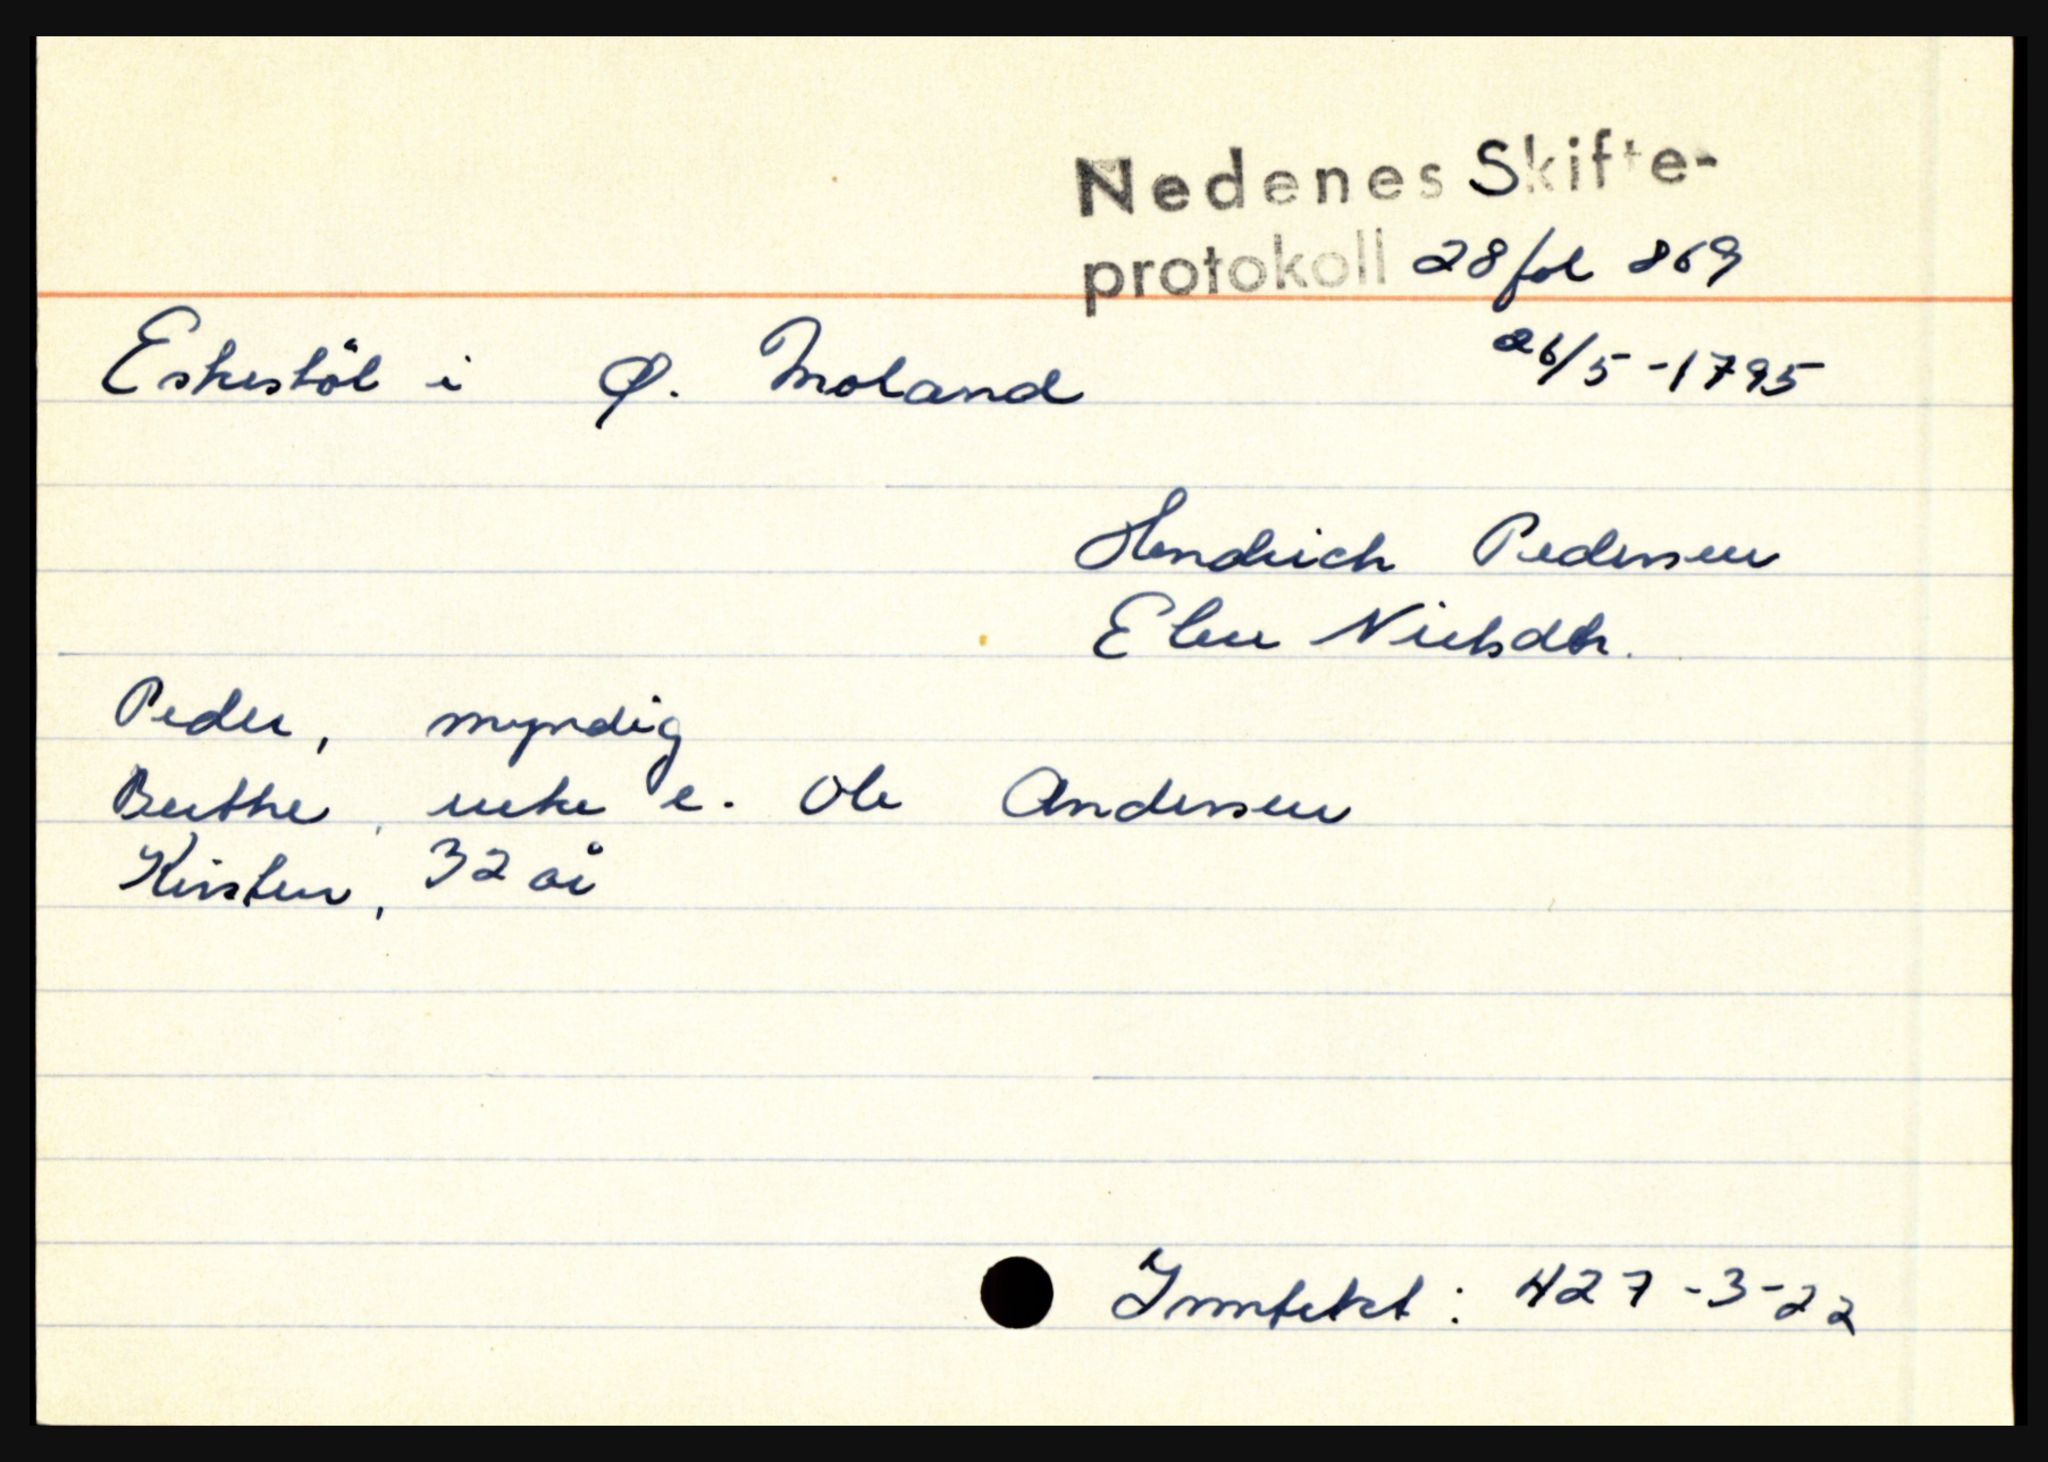 Nedenes Skifte-
protokoll 28 fol 869
Eskestöl i Ø. Moland 26/5-1795
Hendrich Pedersen
Elen Nielsdtr.
Peder, myndig
Berthe, enke e. Ole Andersen
Kirsten, 32 år
Inntekt: 427-3-22